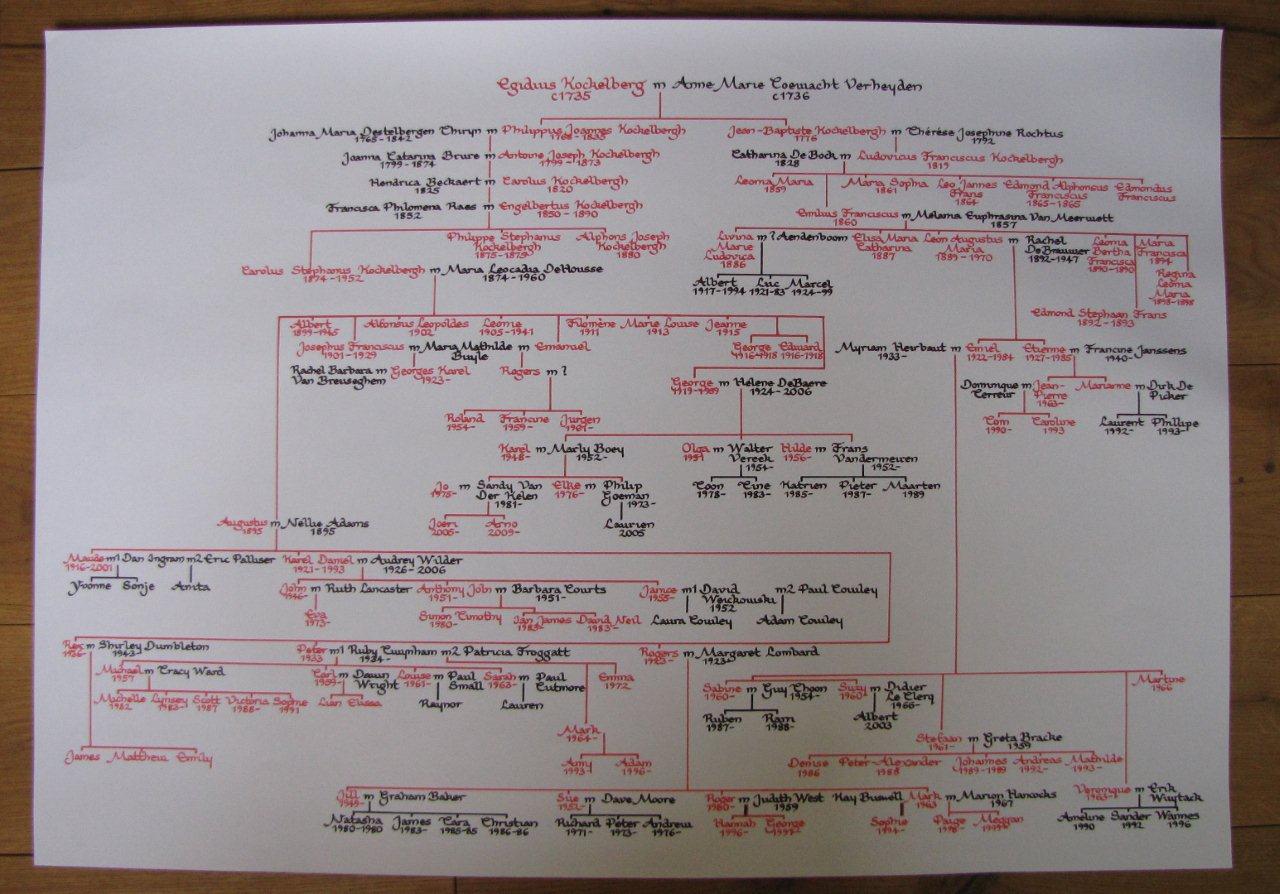 Egidius Kockelberg m Anne Marie Coewacht Verheyden
c1735 c1736
Johanna Maria Destelbergen Thuryn m Philippus Joannes Kockelbergh Jean-Baptiste Kockelbergh m Thérèse Josephine Rochtus
1765-1842 1776 1792
Joanna Catarina Brure m Antoine Joseph Kockelbergh Catharina De Bock m Ludovicus Franciscus Kockelbergh
1799-1874 1799-1873 1828 1819
Hendrica Beckaert m Carolus Kockelbergh Leonia Maria Maria Sophia Leo Jannes Frans Edmond Alphonsus Franciscus Edmondus Franciscus
1825 1820 1859 1861 1864 1865-1865
Francisca Philomena Raes m Engelbertus Kockelbergh Emilius Franciscus m Melania Euphrasina Van Meerwett
1852 1850-1890 1860 1857
Philippe Stephanus Kockelbergh Alphons Joseph Kockelbergh Livina Marie Ludovica m ? Aendenboom Elisa Maria Catharina Léon Augustus Maria m Rachel De Brauwer Léonia Bertha Francisca Maria Francisca
1875-1879 1880 1886 1887 1889-1970 1892-1947 1890-1890 1894
Regina Leonia Maria
Carolus Stephanus Kockelbergh m Maria Leocadia DeHousse
1874-1952 1874-1960
Albert Luc Marcel
1917-1994 1921-83 1924-99
Edmond Stephaan Frans
1892-1893
Albert Alfonsus Leopoldes Leonie Filomène Marie Louise Jeanne
1899-1965 1902 1905-1941 1911 1913 1915
Josephus Franciscus m Maria Mathilde Buyle m Emanuel George Edward Myriam Heirbaut m Emiel Etienne m Francine Janssens
1901-1929 1916-1918 1916-1918 1933- 1922-1984 1927-1985 1940-
Rachel Barbara Van Breuseghem m Georges Karel Rogers m ? George m Hélène DeBaere
1923- 1919-1989 1924-2006
Dominique Terreur m Jean-Pierre Marianne m Dirk De Picker
1963-
Roland Francine Jurgen Tom Caroline Laurent Philipe
1954- 1959- 1961- 1990- 1993 1992- 1993-
Karel m Marly Boey Olga m Walter Vereek Hilde m Frans Vandermeiren
1948- 1952- 1951 1954- 1956- 1952-
Jo m Sandy Van Der Kelen Elke m Philip Goeman Toon Tine Katrien Pieter Maarten
1975- 1981- 1976- 1973- 1978- 1983- 1985- 1987- 1989
Joeri Arno Laurien
2005- 2009- 2005
Augustus m Nellie Adams
1895 1895
Maude m1 Dan Ingram m2 Eric Palluser Karel Daniel m Audrey Wilder
1916-2001 1921-1993 1926-2006
Yvonne Sonje Anita John m Ruth Lancaster Anthony John m Barbara Courts Janice m1 David m2 Paul Cowley
1946- 1951- 1951- 1955- 1952
Eva Simon Timothy Ian James David Neil Laura Cowley Adam Cowley
1973- 1980- 1983- 1983-
Rex m Shirley Dumbleton Peter m1 Ruby m2 Patricia Froggatt Rogers m Margaret Lombard
1936- 1943- 1933 1934- 1923- 1923-
Michael m Tracy Ward Carl m Dawn Wright Louise m Paul Small Sarah m Paul Cutmore Emma
1957 1959- 1961- 1963- 1972
Sabine m Guy Thoon Suzy m Didier Le Clerq Martine
1960- 1954- 1960- 1966- 1966
Michelle Lynsey Scott Victoria Sophie Lian Elissa Raynor Lauren
1982 1983- 1987 1988- 1991
Ruben Ram Albert
1987- 1988- 2003
Mark Stefaan m Greta Bracke
1964- 1961- 1959
James Matthew Emily Amy Adam Denise Peter-Alexander Johannes Andreas Mathilde
1993- 1996- 1986 1988 1989-1989 1992- 1993-
Jill m Graham Baker Sue m Dave Moore Roger m Judith West Kay Buswell Mark m Marion Hancocks Veronique m Erik Wuytack
1949- 1952- 1959 1963 1967 1963-
Natasha James Cara Christian Richard Peter Andrew Hannah George Sophie Paige Meggan Ameline Sander Wannes
1980-1980 1983- 1985-85 1986-86 1971- 1973- 1976- 1996- 1997- 1994- 1998- 1990 1992 1996